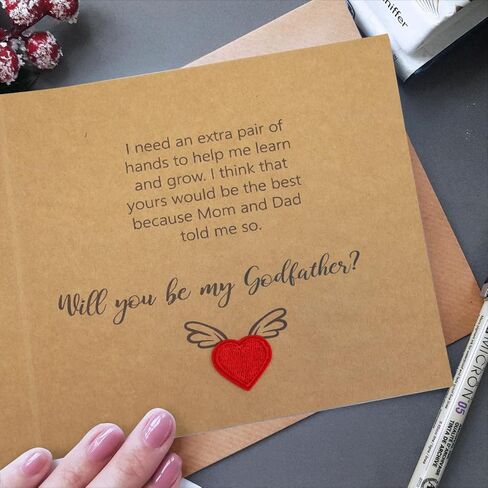 I need an extra pair of
hands to help me learn
and grow. I think that
yours would be the best
because Mom and Dad
told me so.
Will you be my Godfather?
MICRON 05